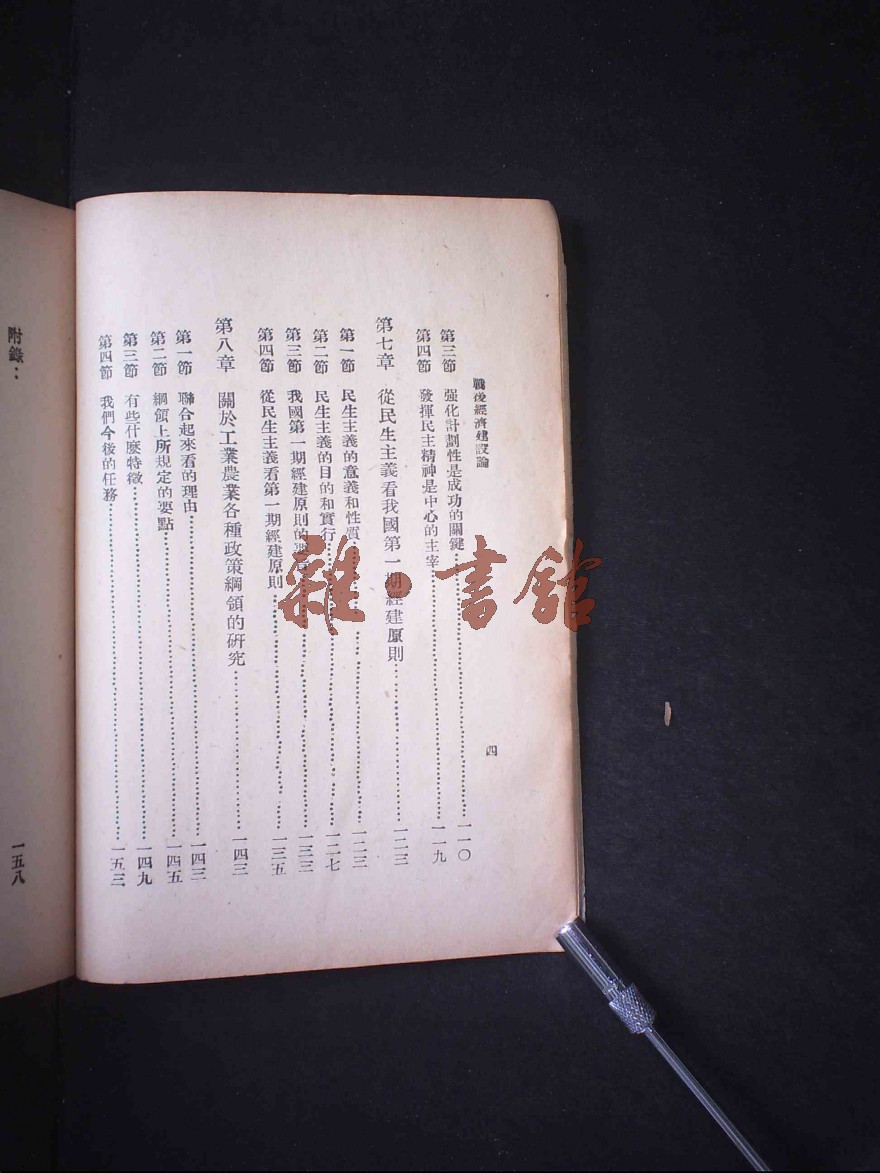 戰後經濟建設論
四
第三節 强化計劃性是成功的關鍵 一一〇
第四節 發揮民主精神是中心的主宰 一一九
第七章 從民生主義看我國第一期經建原則 一二三
第一節 民生主義的意義和性質 一二三
第二節 民生主義的目的和實行 一二七
第三節 我國第一期經建原則的 一三三
第四節 從民生主義看第一期經建原則 一三五
第八章 關於工業農業各種政策綱領的研究 一四三
第一節 聯合起來看的理由 一四三
第二節 綱領上所規定的要點 一四五
第三節 有些什麼特徵 一四九
第四節 我們今後的任務 一五三
附錄： 一五八
雜·書館